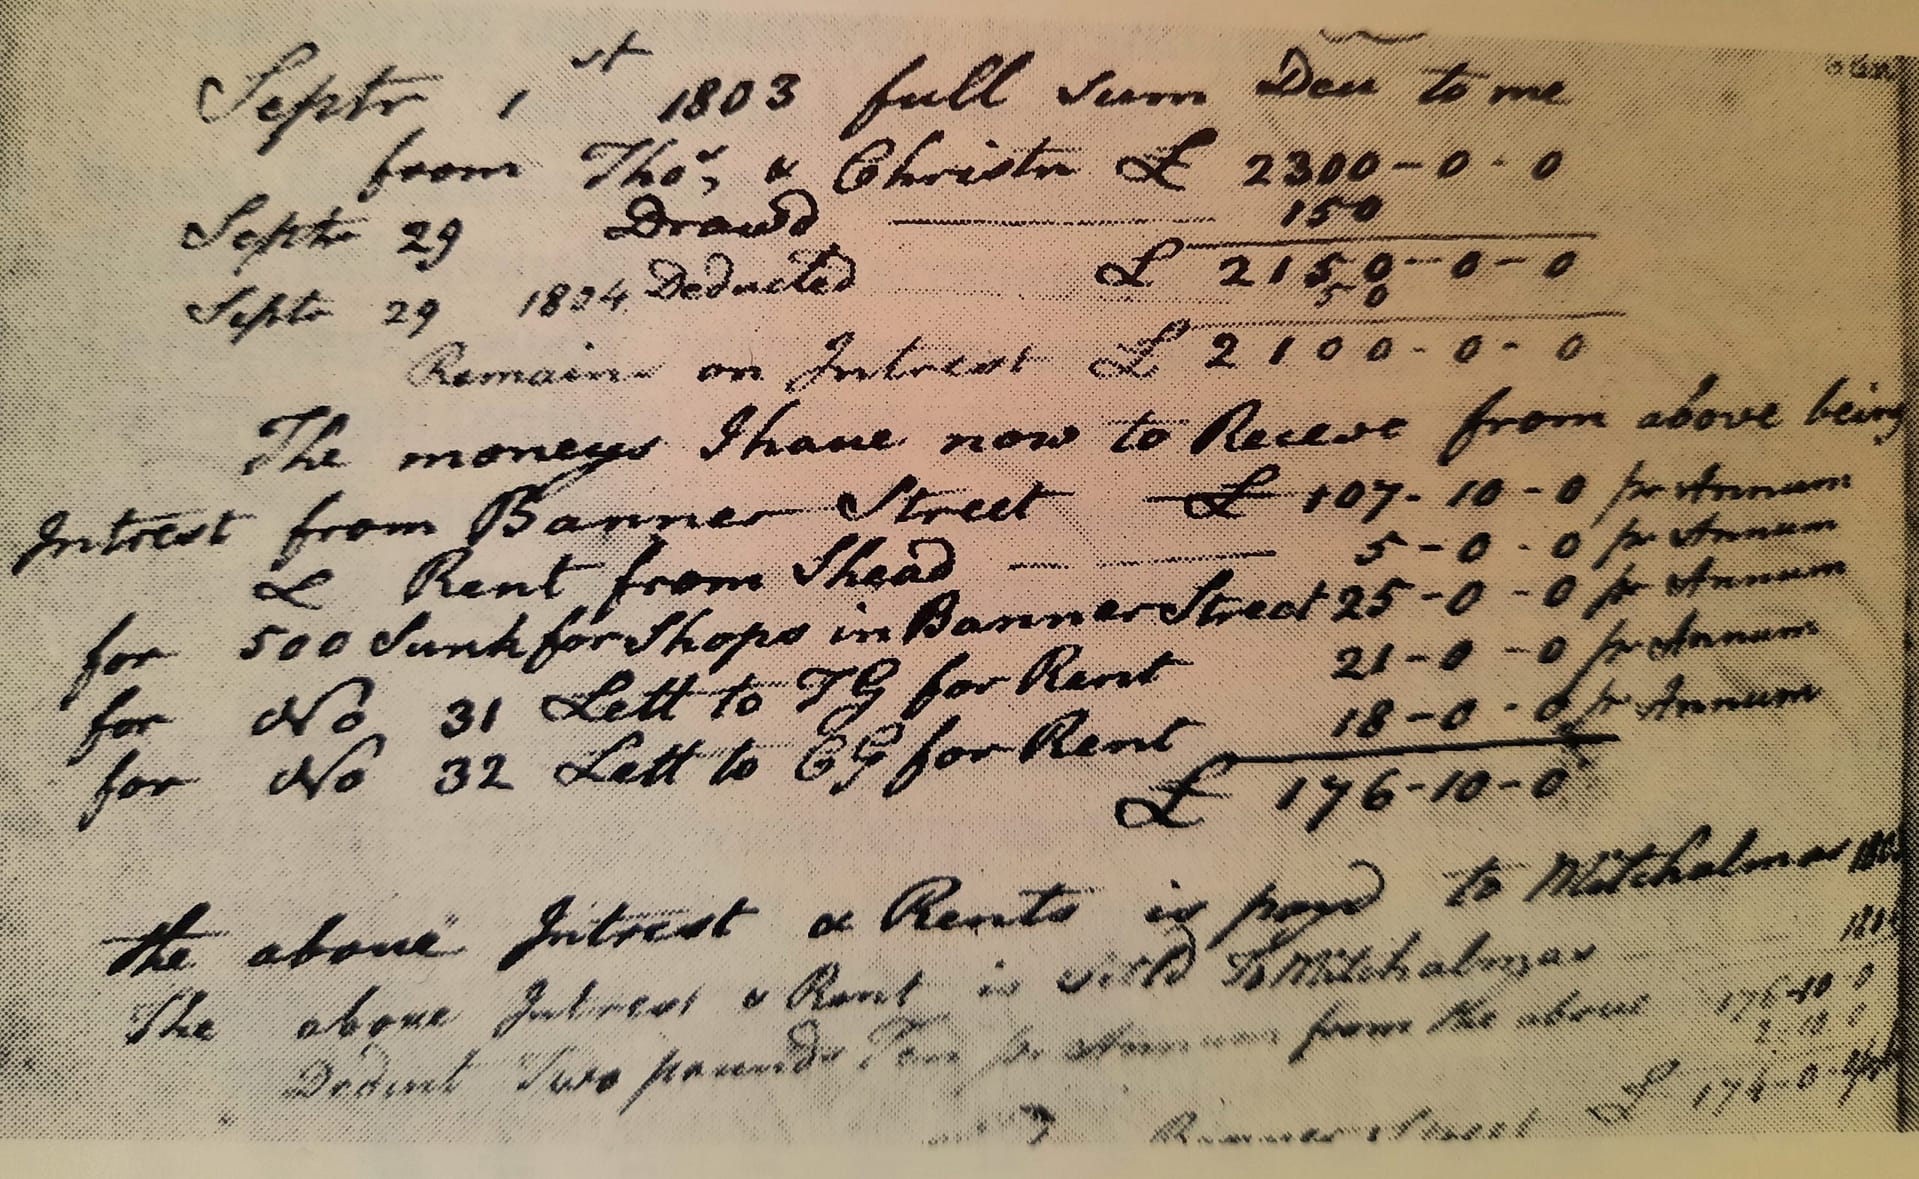 Septr 1st 1803 full Sum Deu to me
from Thos, & Christr £ 2300-0-0
Septr 29 Drawd 150
£ 2150-0-0
Septr 29 1804 Deducted 50
Remain on Intrest £ 2100-0-0
The moneys I have now to Receve from above being
Intrest from Banner Street £ 107-10-0 pr Annum
& Rent from Shead 5-0-0 pr Annum
for 500 Sunk for Shops in Banner Street 25-0-0 pr Annum
for No 31 Lett to TG for Rent 21-0-0 pr Annum
for No 32 Lett to CG for Rent 18-0-0 pr Annum
£ 176-10-0
the above Intrest & Rents is payd to Mitchalmas
The above Intrest & Rent is Setld To Mitchalmas
Deduct Two pounds Ten pr Annum from the above 176-10 0
2-10 0
£ 174-0
Banner Street